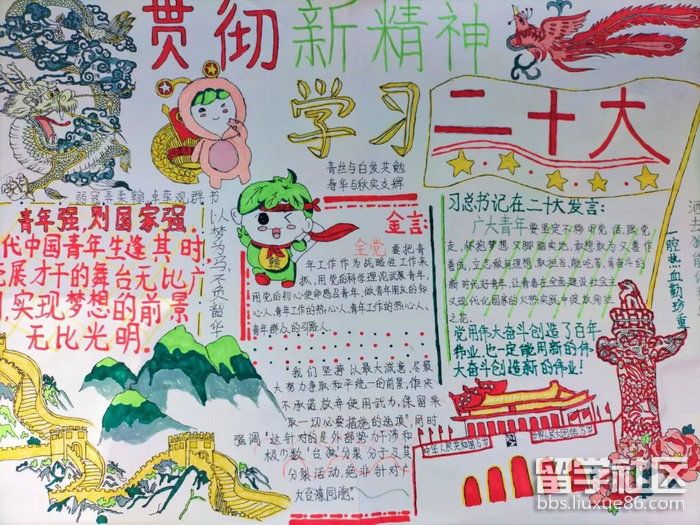 贯彻新精神
学习二十大
青丝与白发共勉
春华与秋实交辉
弱冠弄柔翰,卓荦观群书
以梦为马不负韶华
青年强,则国家强。
代中国青年生逢其时,
展才干的舞台无比广
,实现梦想的前景
无比光明。
金言:
全党要把青
年工作作为战略性工作来
抓,用党的科学理论武装青年,
用党的初心使命感召青年,做青年朋友的知
心人、青年工作的热心人、青年工作的热心人、
青年群众的引路人。
"我们坚持以最大诚意、尽最
大努力争取和平统一的前景,但决
不承诺放弃使用武力,保留采
取一切必要措施的选项"同时
强调"这针对的是外部势力干涉和
极少数'台独'分裂分子及其
分裂活动,绝非针对广
大台湾同胞。"
习总书记在二十大发言:
广大青年要坚定不移听党话、跟党
走,怀抱梦想又脚踏实地,敢想敢为又善作
善成,立志做有理想、敢担当、能吃苦、肯奋斗的
新时代好青年,让青春在全面建设社会主
义现代化国家的火热实践中绽放绚丽
之花。
党用伟大奋斗创造了百年
伟业,也一定能用新的伟
大奋斗创造新的伟业!
一腔热血勤珍重
洒去
中华人民共和国万岁
世界人民大团结万岁
留学社区
bbs.liuxue86.com